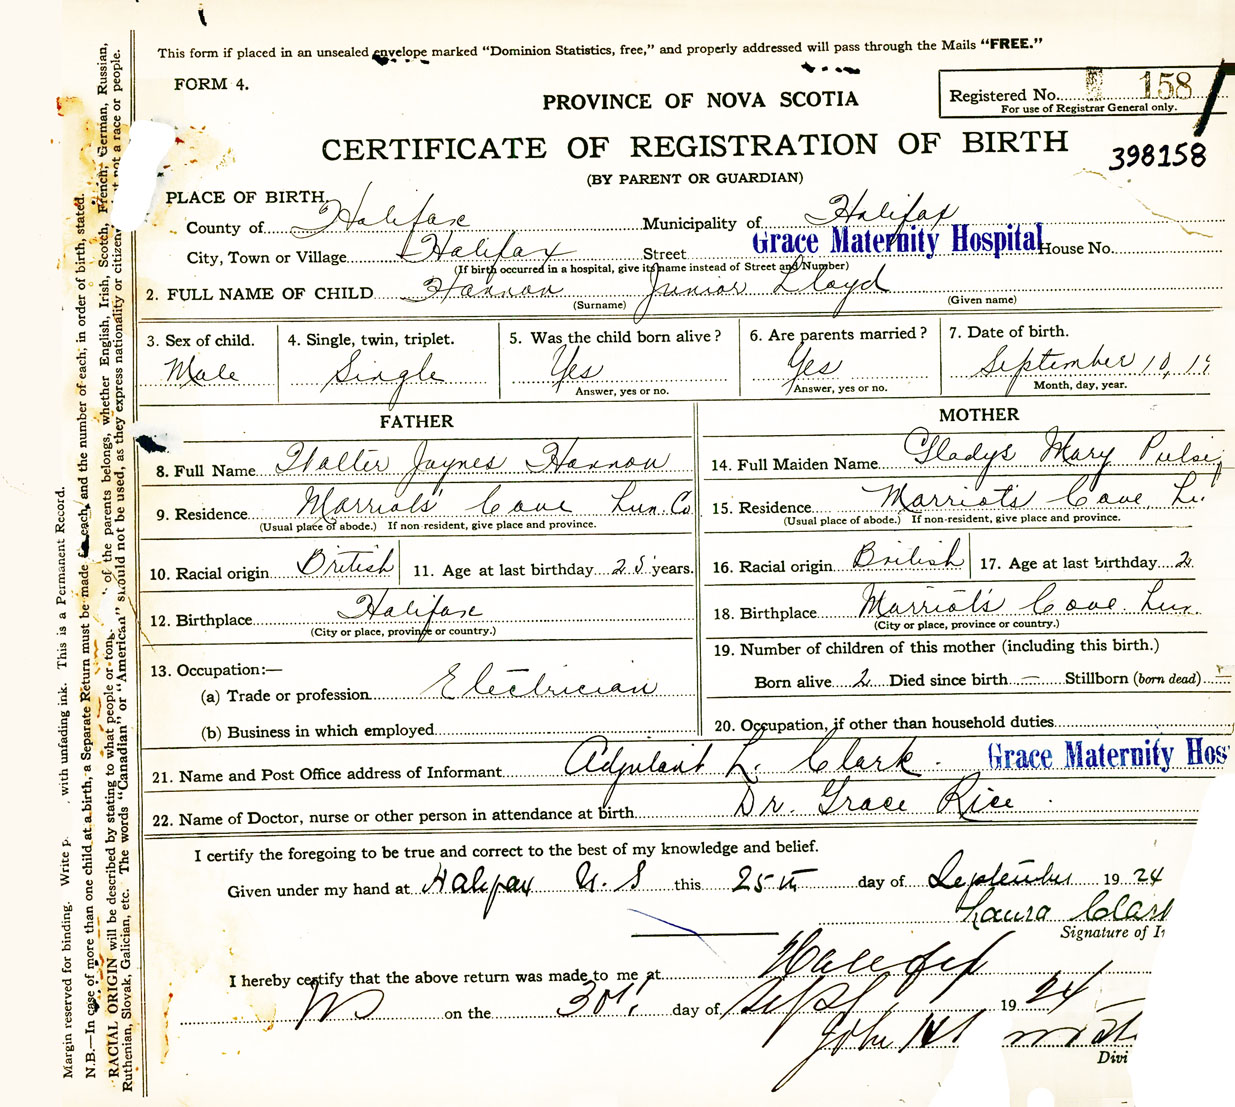 This form if placed in an unsealed envelope marked “Dominion Statistics, free,” and properly addressed will pass through the Mails “FREE.”
FORM 4.
Registered No. 158
For use of Registrar General only.
PROVINCE OF NOVA SCOTIA
CERTIFICATE OF REGISTRATION OF BIRTH
398158
(BY PARENT OR GUARDIAN)
PLACE OF BIRTH
County of Halifax Municipality of Halifax
City, Town or Village Halifax Street Grace Maternity Hospital House No.
(If birth occurred in a hospital, give its name instead of Street and Number)
2. FULL NAME OF CHILD Hannon Junior Lloyd
(Surname) (Given name)
3. Sex of child. 4. Single, twin, triplet. 5. Was the child born alive? 6. Are parents married? 7. Date of birth.
Male Single Yes Yes September 10, 19
Answer, yes or no. Answer, yes or no. Month, day, year.
FATHER MOTHER
8. Full Name Walter Jaynes Hannon
14. Full Maiden Name Gladys Mary
9. Residence Marriots Cove Lun. Co.
15. Residence Marriots Cove Lu
(Usual place of abode.) If non-resident, give place and province.
(Usual place of abode.) If non-resident, give place and province.
10. Racial origin British 11. Age at last birthday 25 years.
16. Racial origin British 17. Age at last birthday 2
12. Birthplace Halifax
18. Birthplace Marriots Cove Lun.
(City or place, province or country.)
(City or place, province or country.)
13. Occupation:—
19. Number of children of this mother (including this birth.)
(a) Trade or profession Electrician
Born alive 2 Died since birth — Stillborn (born dead) —
(b) Business in which employed
20. Occupation, if other than household duties
21. Name and Post Office address of Informant Adjutant L. Clark. Grace Maternity Hos
22. Name of Doctor, nurse or other person in attendance at birth Dr Grace Rice
I certify the foregoing to be true and correct to the best of my knowledge and belief.
Given under my hand at Halifax N.S this 25th day of September 1924
Laura Clark
Signature of I
I hereby certify that the above return was made to me at Halifax
on the 30th day of Sept 1924
John
Divi
Margin reserved for binding. Write p with unfading ink. This is a Permanent Record.
N.B.—In case of more than one child at a birth, a Separate Return must be made for each, and the number of each, in order of birth, stated.
RACIAL ORIGIN will be described by stating to what people or of the parents belongs, whether English, Irish, Scotch, French, German, Russian,
Ruthenian, Slovak, Galician, etc. The words “Canadian” or “American” should not be used, as they express nationality or citizen not a race or people.